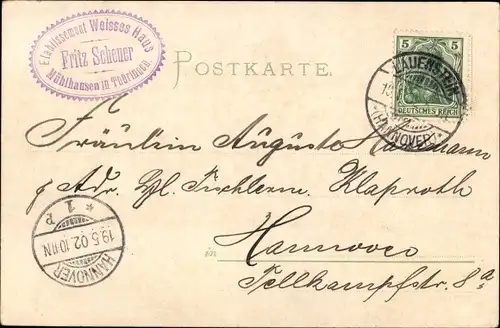 Etablissement Weisses Haus
Fritz Scheuer
Mühlhausen in Thüringen.
POSTKARTE.
5 5
DEUTSCHES REICH
LAUENSTEIN
(HANNOVER)
Fräulein Auguste
p. Adr. Tischlerm. Klaproth
Hannover
in
Tellkampfstr. 8a
HANNOVER
19.5.02.10-11N.
* 1 P